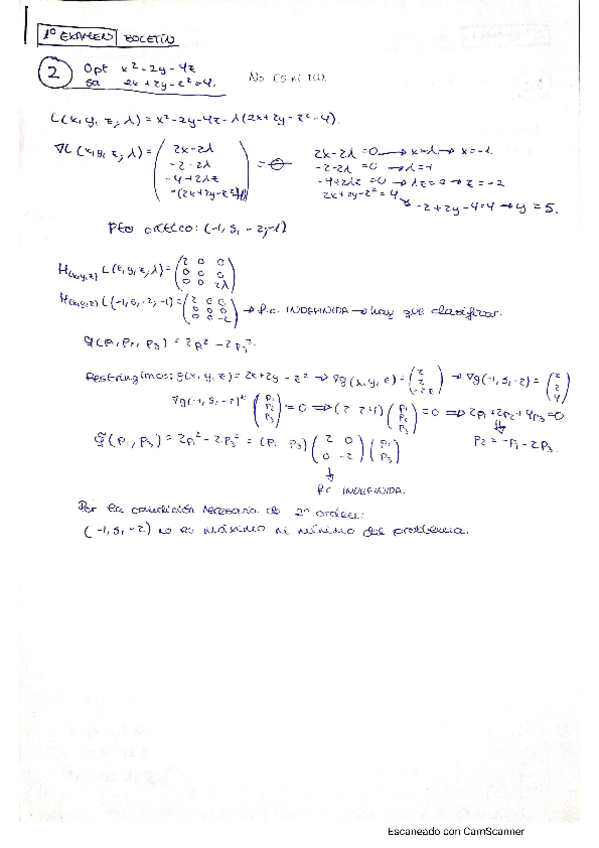 1º EXAMEN BOLETÍN
2 Opt x²-2y-4z
sa 2x+2y-z²=4.
L(x,y,z,λ)=x²-2y-4z-λ(2x+2y-z²-4)
∇L(x,y,z,λ)= (2x-2λ
-2-2λ
-4+2λz
-(2x+2y-z²-4)) = θ
2x-2λ=0 → x=λ → x=-1.
-2-2λ=0 → λ=-1
-4+2λz=0 → λz=2 → z=-2
2x+2y-z²=4 → -2+2y-4=4 → y=5.
PTO CRÍTICO: (-1,5,-2,-1)
H(x,y,z) L(x,y,z,λ)= (2 0 0
0 0 0
0 0 2λ)
H(x,y,z) L(-1,5,-2,-1)= (2 0 0
0 0 0
0 0 -2) → f.c. INDEFINIDA → hay que clasificar.
q(p1,p2,p3)=2p1²-2p3².
Restringimos: g(x,y,z)=2x+2y-z² → ∇g(x,y,z)= (2
2
-2z) → ∇g(-1,5,-2)= (2
2
4)
∇g(-1,5,-2)ᵗ (p1
p2
p3) =0 ⇒ (2 2 4) (p1
p2
p3) =0 ⇒ 2p1+2p2+4p3=0
p2=-p1-2p3.
q̃(p1,p3)=2p1²-2p3²=(p1 p3) (2 0
0 -2) (p1
p3)
f.c INDEFINIDA.
Por la condición necesaria de 2º orden:
(-1,5,-2) no es máximo ni mínimo del problema.
Escaneado con CamScanner